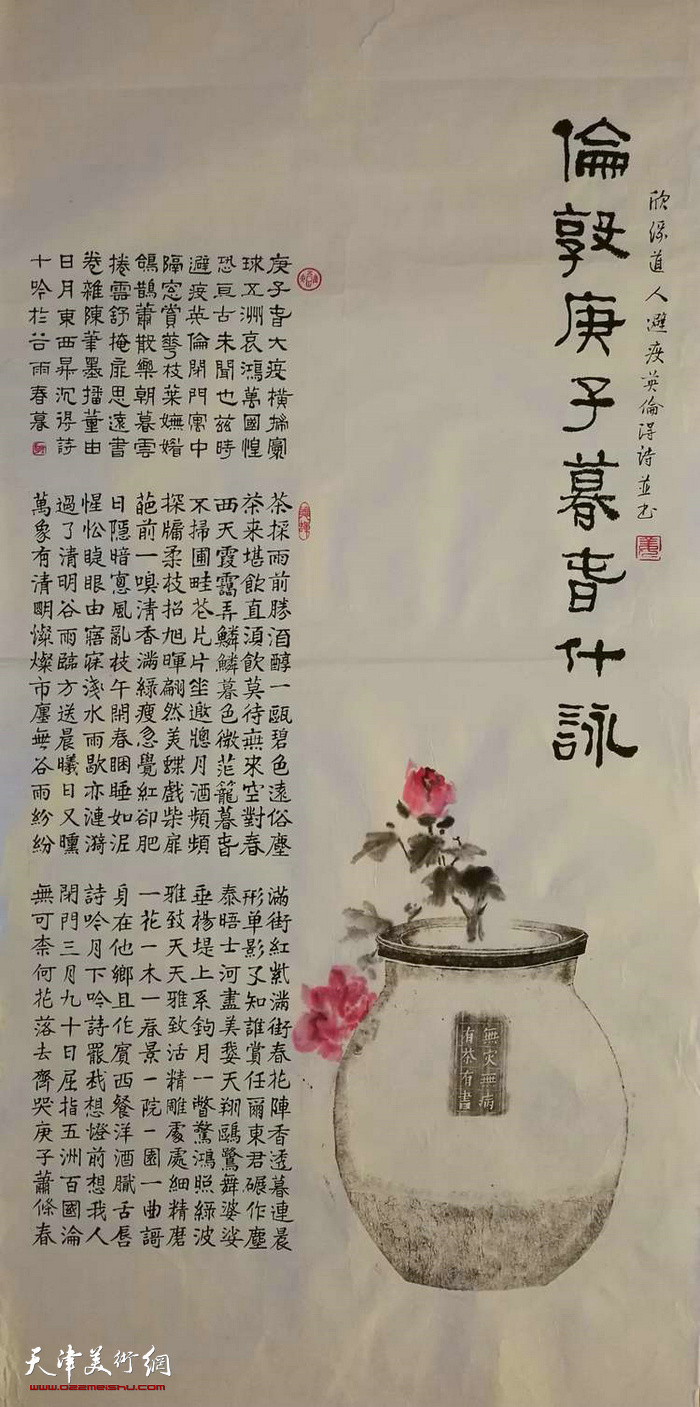 欣深道人避疫英倫得詩並书
倫敦庚子暮旾什詠
庚子旾大疫橫掃寰
球五洲哀鴻萬國惶
恐亘古未聞也茲時
避疫英倫閉門寓中
隔窓賞蕚枝葉嫵媚
鴿鵲蕭散樂朝暮雲
捲雲舒掩扉思遠書
卷雜陳筆墨播董由
日月東西昇沉得詩
十吟於谷雨春暮
茶採雨前勝酒醇一甌碧色遠俗塵
茶来堪飲直須飲莫待無來空對春
西天霞靄弄鱗鱗暮色微茫籠暮旾
不掃圃畦花片片坐邀牕月酒頻頻
探牖柔枝招旭暉翩然美蝶戲柴扉
葩前一嗅清香滿綠瘦急覺紅卻肥
日隱暗窓風亂枝午閑春睏睡如泥
惺忪睫眼由寤寐淺水雨歇亦漣漪
過了清明谷雨臨方送晨曦日又曛
萬象有清明燦燦市廛無谷雨紛紛
滿街紅紫滿街春花陣香透暮連晨
形單影孑知誰賞任爾東君碾作塵
泰晤士河盡美婺天翔鷗鷺舞婆娑
垂楊堤上系鉤月一瞥驚鴻照綠波
雅致天天雅致活精雕處處細精磨
一花一木一春景一院一園一曲謌
身在他鄉且作賓西餐洋酒膩舌唇
詩吟月下吟詩罷我想燈前想我人
閉門三月九十日屈指五洲百國淪
無可柰何花落去齊哭庚子蕭條春
無灾無病
有茶有書
天津美術網
www.022meishu.com